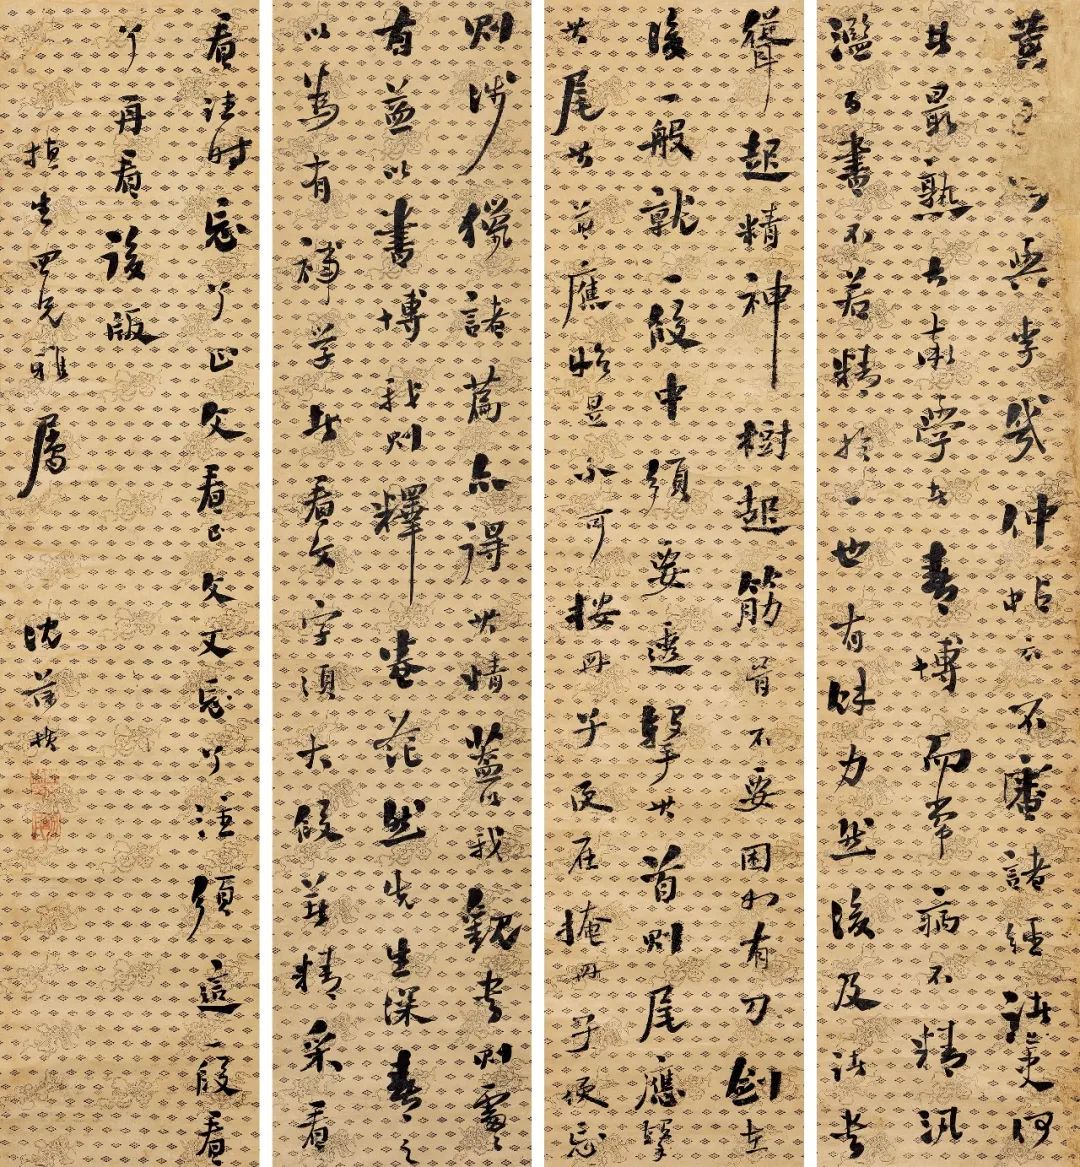 黃谷與李幾仲帖云不審諸經諸史何
者最熟大率學者喜博而常病不精汎
濫百書不若精於一也有餘力然後及諸書
聳起精神樹起筋骨不要困如有刀劍在
後一般就一段中須要透擊其首則尾應擊
其尾其首應始是不可按冊子便在掩冊子便忘
則涉獵諸篇亦得其精蓋以我觀書則處處
有益以書博我則釋卷茫然先生深喜之
以為有補學者看文字須大段著精采看
看注時忘了正文看正文又忘了注須這一段看
了再看後版
生四兄雅屬 沈曾植